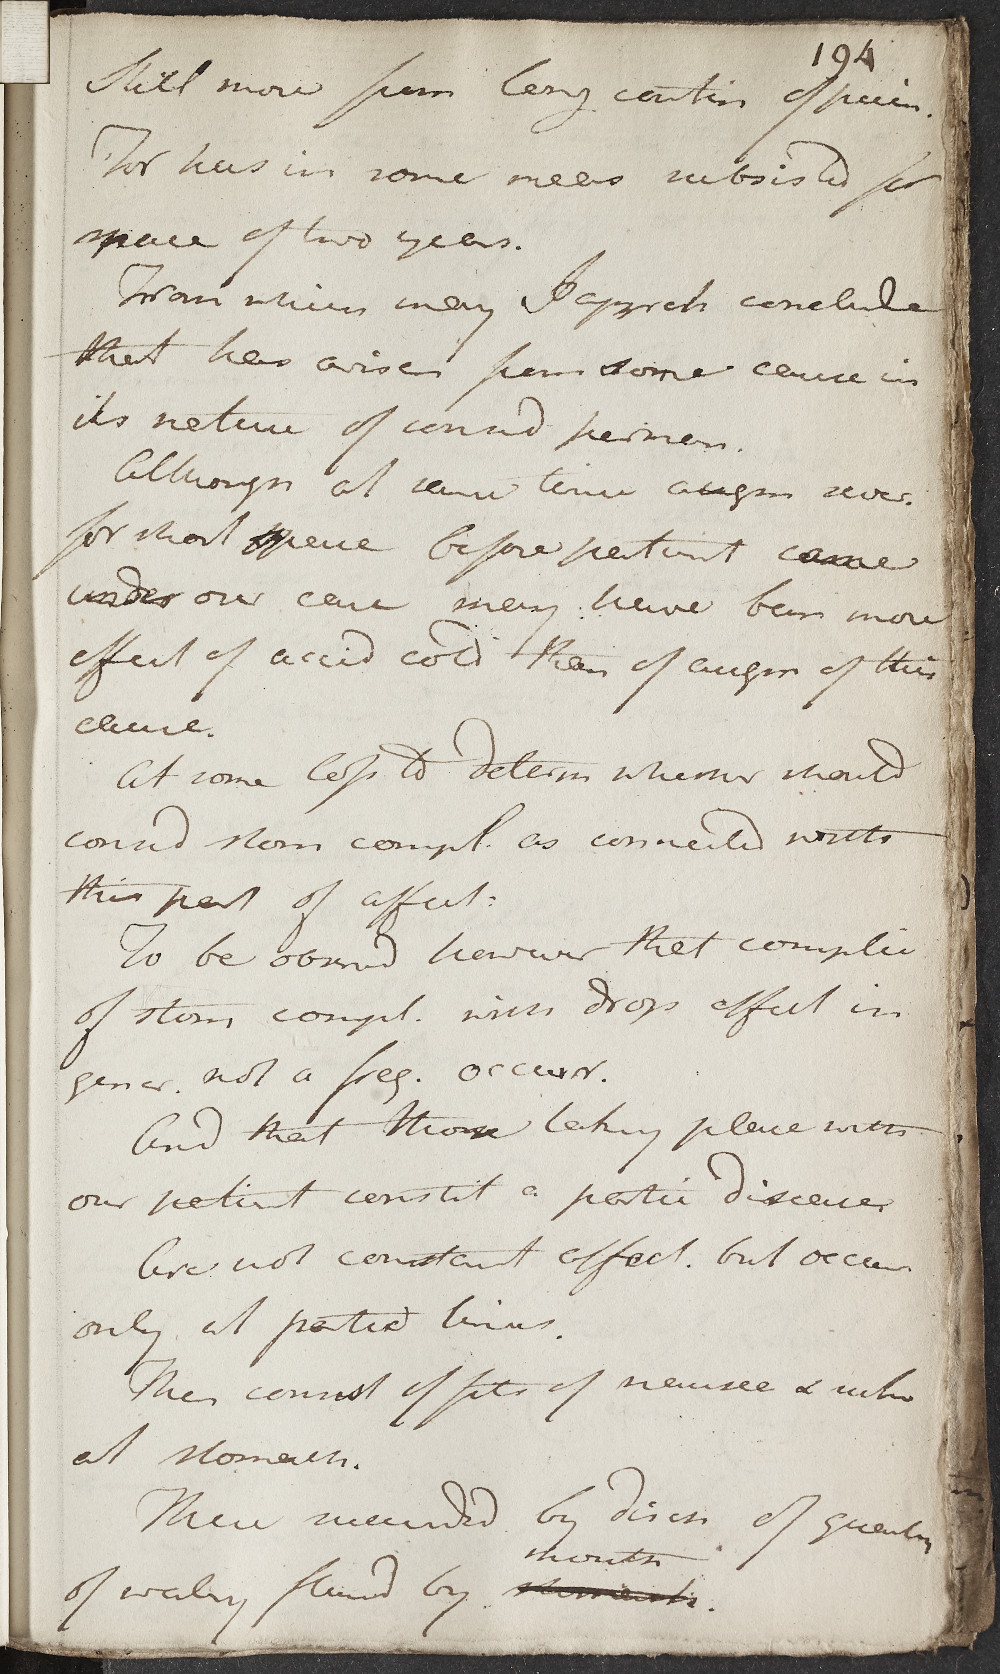 194
Still more from long contin of pain.
For has in some meas subsisted for
space of two years.
From which may I appreh conclude
that has arisen from some cause in
its nature of consid perman.
Although at same time augm sever.
for short space before patient came
under our care may have been more
effect of accid cold than of augm of this
cause.
At some loss to determ whether should
consid stom compl. as connected with
this part of affect:
To be observd however that complic
of stom compl. with drops affect in
gener. not a freq. occurr.
And that those taking place with
our patient constit a partic disease
Are not constant affect. but occur
only at partic times.
They consist of fits of nausea &
at stomach.
These succeeded by disch of quantity
of watery fluid by mouth stomach.